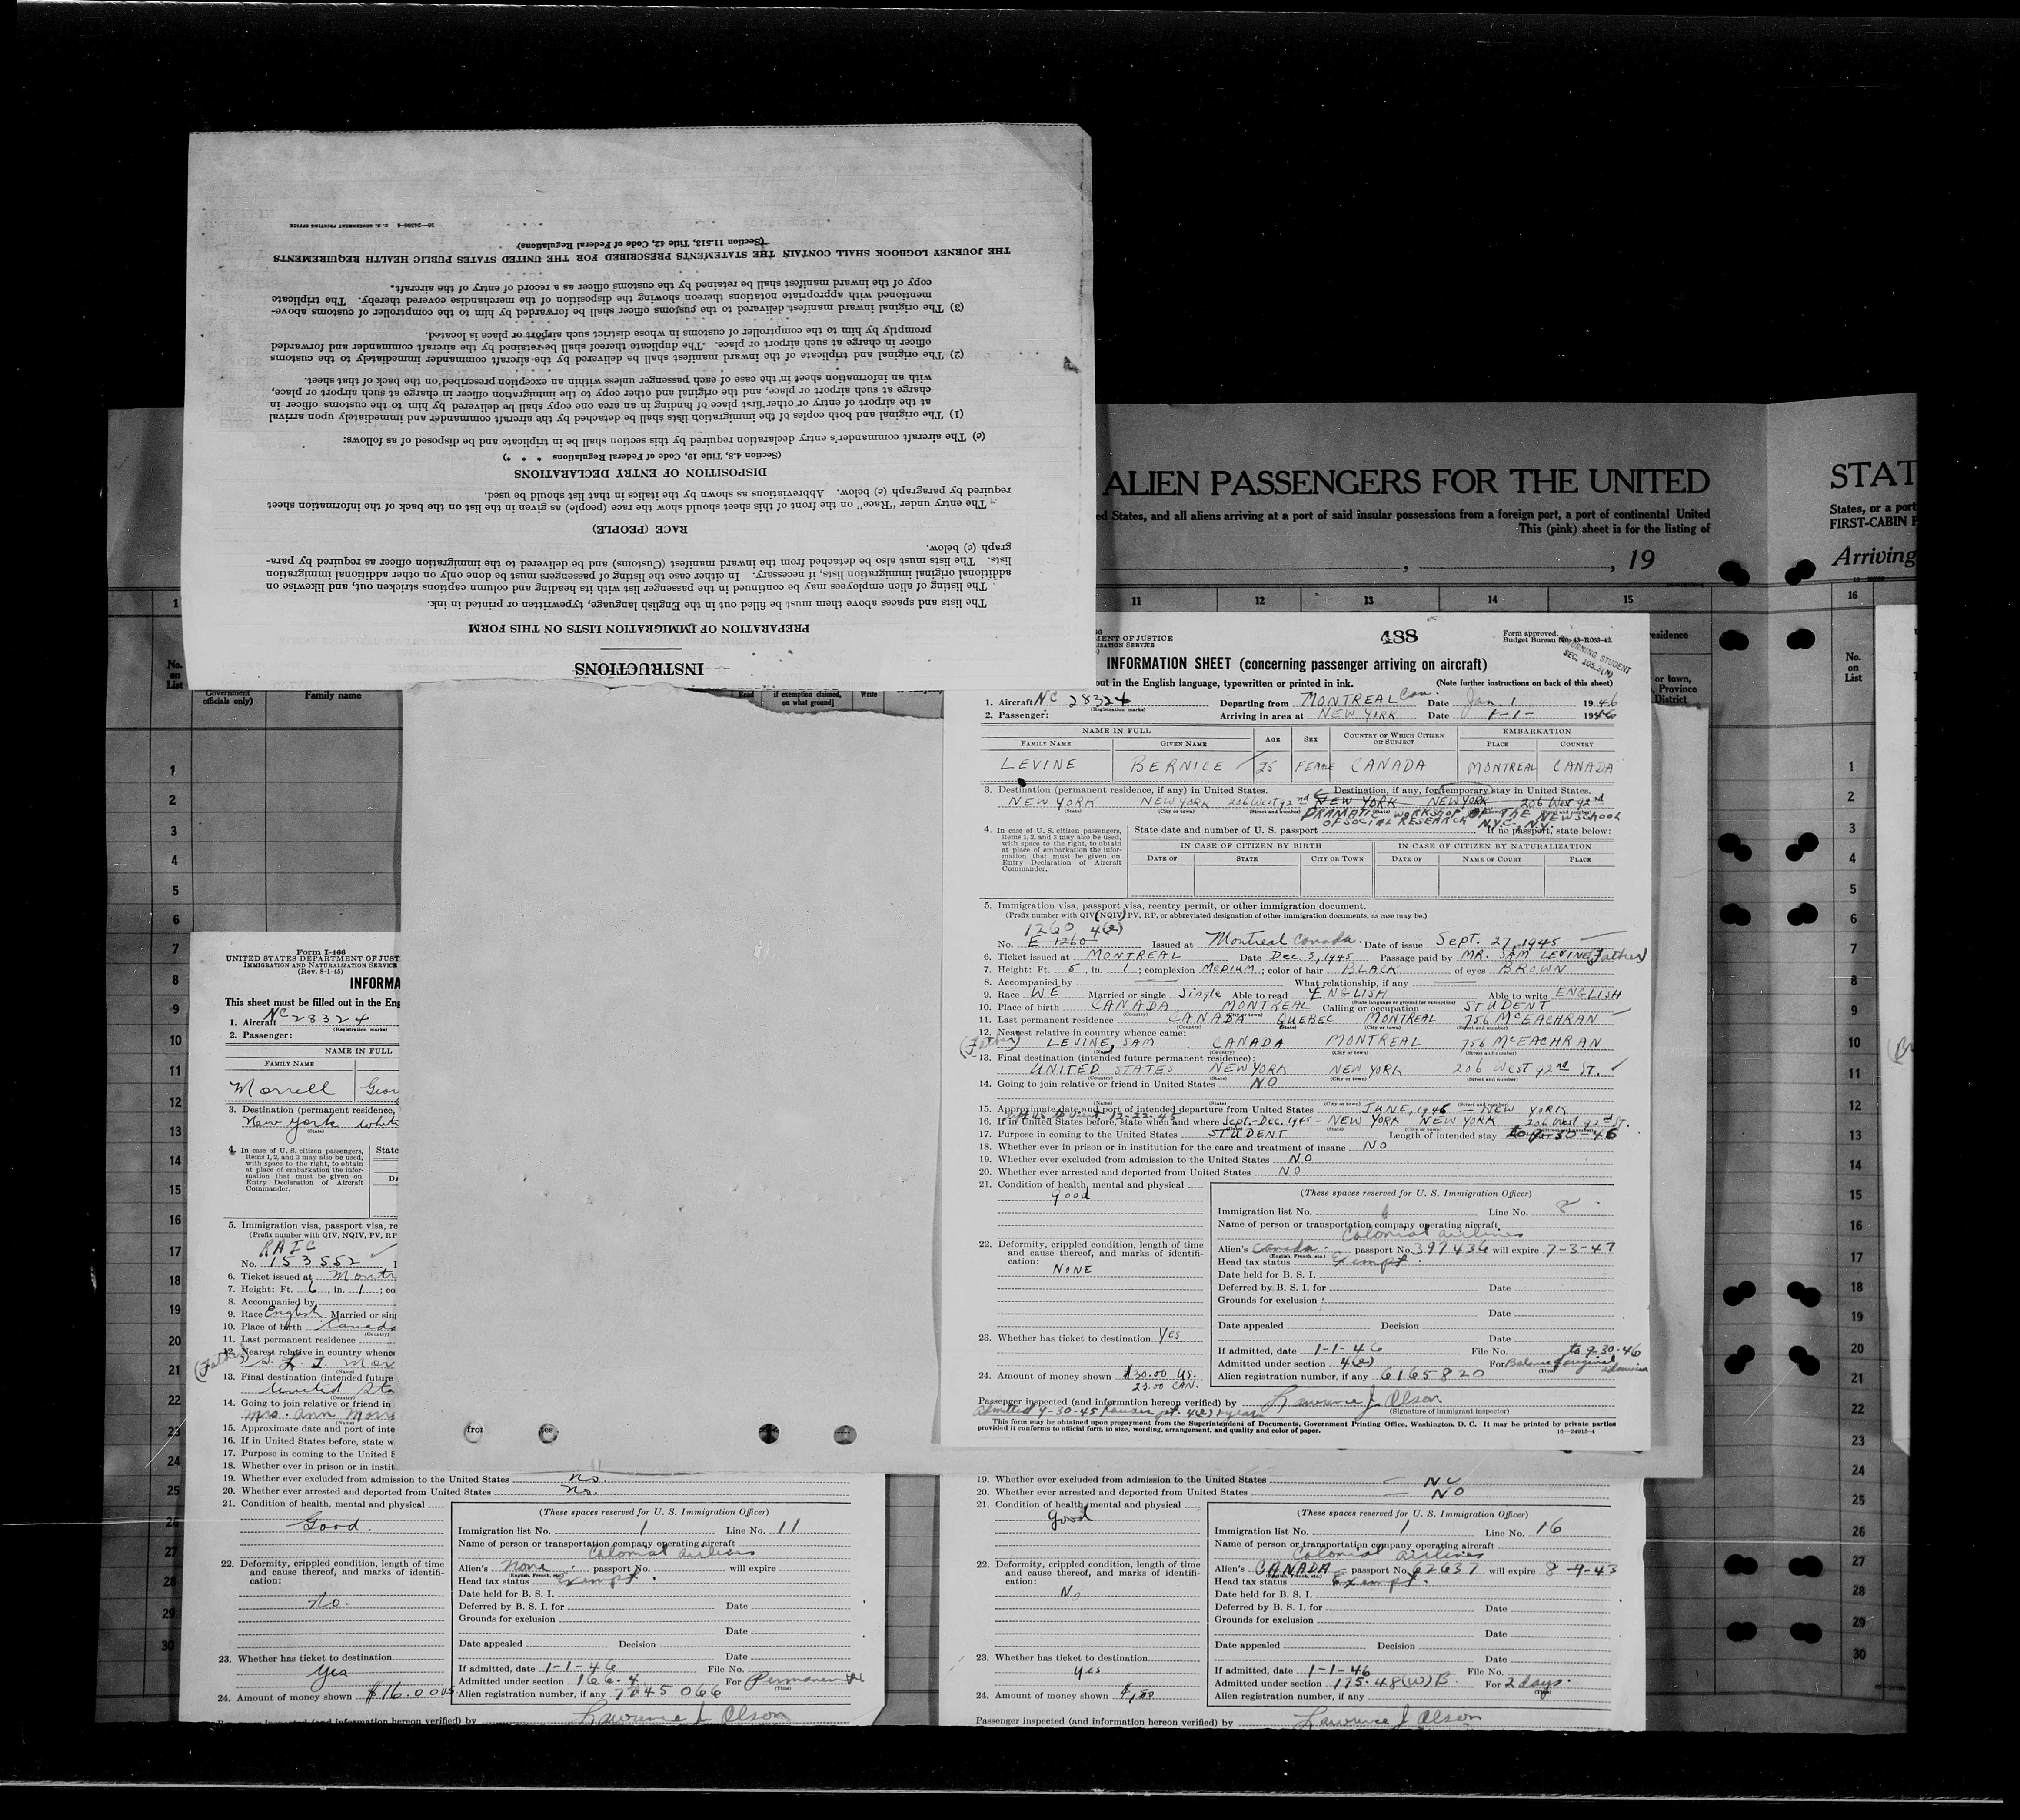 INSTRUCTIONS
PREPARATION OF IMMIGRATION LISTS ON THIS FORM
The lists and spaces above them must be filled out in the English language, typewritten or printed in ink.
The listing of alien employees may be continued in the passenger list with its heading and column captions stricken out, and likewise on
additional original immigration lists, if necessary. In either case the listing of passengers must be done only on other additional immigration
lists. The lists must also be detached from the inward manifest (Customs) and be delivered to the immigration officer as required by para-
graph (c) below.
RACE (PEOPLE)
The entry under "Race" on the front of this sheet should show the race (people) as given in the list on the back of the information sheet
required by paragraph (c) below. Abbreviations as shown by the italics in that list should be used.
DISPOSITION OF ENTRY DECLARATIONS
(Section 4.8, Title 19, Code of Federal Regulations * * *)
(c) The aircraft commander's entry declaration required by this section shall be in triplicate and be disposed of as follows:
(1) The original and both copies of the immigration lists shall be detached by the aircraft commander and immediately upon arrival
at the airport of entry or other first place of landing in an area one copy shall be delivered by him to the customs officer in
charge at such airport or place, and the original and other copy to the immigration officer in charge at such airport or place,
with an information sheet in the case of each passenger unless within an exception prescribed on the back of that sheet.
(2) The original and triplicate of the inward manifest shall be delivered by the aircraft commander immediately to the customs
officer in charge at such airport or place. The duplicate thereof shall be retained by the aircraft commander and forwarded
promptly by him to the comptroller of customs in whose district such airport or place is located.
(3) The original inward manifest, delivered to the customs officer shall be forwarded by him to the comptroller of customs above-
mentioned with appropriate notations thereon showing the disposition of the merchandise covered thereby. The triplicate
copy of the inward manifest shall be retained by the customs officer as a record of entry of the aircraft.
THE JOURNEY LOGBOOK SHALL CONTAIN THE STATEMENTS PRESCRIBED FOR THE UNITED STATES PUBLIC HEALTH REQUIREMENTS
(Section 11.513, Title 42, Code of Federal Regulations)
U. S. GOVERNMENT PRINTING OFFICE
ALIEN PASSENGERS FOR THE UNITED
STAT
ed States, and all aliens arriving at a port of said insular possessions from a foreign port, a port of continental United
This (pink) sheet is for the listing of
States, or a port
FIRST-CABIN
, 19
Arriving
11 12 13 14 15 16
No. on List
Family name
Read
if exemption claimed, on what ground]
Write
No. on List
MENT OF JUSTICE
438
Form approved.
Budget Bureau No. 43-R063-42.
INFORMATION SHEET (concerning passenger arriving on aircraft)
out in the English language, typewritten or printed in ink. (Note further instructions on back of this sheet)
1. Aircraft NC 28324 Departing from MONTREAL Can. Date Jan. 1 1946
(Registration marks)
2. Passenger: Arriving in area at NEW YORK Date 1-1- 1946
NAME IN FULL AGE SEX COUNTRY OF WHICH CITIZEN OR SUBJECT EMBARKATION
FAMILY NAME GIVEN NAME PLACE COUNTRY
LEVINE BERNICE 25 FEMALE CANADA MONTREAL CANADA
3. Destination (permanent residence, if any) in United States. Destination, if any, for temporary stay in United States.
NEW YORK NEW YORK 206 West 92nd NEW YORK NEW YORK 206 West 92nd
DRAMATIC WORKSHOP OF THE NEW SCHOOL
OF SOCIAL RESEARCH N.Y.C., N.Y.
4. In case of U. S. citizen passengers, items 1, 2, and 3 may also be used, with space to the right, to obtain at place of embarkation the information that must be given on Entry Declaration of Aircraft Commander.
State date and number of U. S. passport If no passport, state below:
IN CASE OF CITIZEN BY BIRTH IN CASE OF CITIZEN BY NATURALIZATION
DATE OF STATE CITY OR TOWN DATE OF NAME OF COURT PLACE
5. Immigration visa, passport visa, reentry permit, or other immigration document.
(Prefix number with QIV, NQIV, PV, RP, or abbreviated designation of other immigration documents, as case may be.)
1260 4(e)
No. E 1260 Issued at Montreal Canada. Date of issue Sept. 27, 1945
6. Ticket issued at MONTREAL Date Dec 5, 1945 Passage paid by MR. SAM LEVINE (Father)
7. Height: Ft. 5, in. 1; complexion MEDIUM; color of hair BLACK of eyes BROWN
8. Accompanied by What relationship, if any
9. Race WE Married or single Single Able to read ENGLISH Able to write ENGLISH
10. Place of birth CANADA MONTREAL Calling or occupation STUDENT
11. Last permanent residence CANADA QUEBEC MONTREAL 756 McEACHRAN
12. Nearest relative in country whence came:
(Father) LEVINE, SAM CANADA MONTREAL 756 McEACHRAN
13. Final destination (intended future permanent residence):
UNITED STATES NEW YORK NEW YORK 206 West 92nd ST.
14. Going to join relative or friend in United States NO
15. Approximate date and port of intended departure from United States JUNE, 1946 - NEW YORK
16. If in United States before, state when and where Sept.-Dec. 1945 - NEW YORK NEW YORK 206 West 92nd St.
17. Purpose in coming to the United States STUDENT Length of intended stay to 9-30-46
18. Whether ever in prison or in institution for the care and treatment of insane NO
19. Whether ever excluded from admission to the United States NO
20. Whether ever arrested and deported from United States NO
21. Condition of health, mental and physical
good
22. Deformity, crippled condition, length of time and cause thereof, and marks of identification:
NONE
23. Whether has ticket to destination Yes
24. Amount of money shown $30.00 US.
25.00 CAN.
(These spaces reserved for U. S. Immigration Officer)
Immigration list No. Line No. 8
Name of person or transportation company operating aircraft
Colonial Airlines
Alien's Canada passport No. 397436 will expire 7-3-47
Head tax status Exempt.
Date held for B. S. I.
Deferred by B. S. I. for Date
Grounds for exclusion
Date
Date appealed Decision
Date
If admitted, date 1-1-46 File No. to 9-30-46
Admitted under section 4(e) For Balance of original admission
Alien registration number, if any 6165820
Passenger inspected (and information hereon verified) by Lawrence J Olson
(Signature of immigrant inspector)
This form may be obtained upon prepayment from the Superintendent of Documents, Government Printing Office, Washington, D. C. It may be printed by private parties
provided it conforms to official form in size, wording, arrangement, and quality and color of paper. 16-24915-4
Form I-466
UNITED STATES DEPARTMENT OF JUST
IMMIGRATION AND NATURALIZATION SERVICE
(Rev. 8-1-45)
INFORMA
This sheet must be filled out in the Eng
1. Aircraft NC 28324
(Registration marks)
2. Passenger:
NAME IN FULL
FAMILY NAME
Morrell Geor
3. Destination (permanent residence,
New York White
4. In case of U. S. citizen passengers, items 1, 2, and 3 may also be used, with space to the right, to obtain at place of embarkation the information that must be given on Entry Declaration of Aircraft Commander.
State
5. Immigration visa, passport visa, re
(Prefix number with QIV, NQIV, PV, RP
RAIC
No. 153552
6. Ticket issued at Montr
7. Height: Ft. 6, in. 1; co
8. Accompanied by
9. Race English Married or sing
10. Place of birth Canada
11. Last permanent residence
12. Nearest relative in country whence
(Father)
13. Final destination (intended future
United Sta
14. Going to join relative or friend in
Mrs. Ann Morr
15. Approximate date and port of inte
16. If in United States before, state w
17. Purpose in coming to the United S
18. Whether ever in prison or in instit
19. Whether ever excluded from admission to the United States no.
20. Whether ever arrested and deported from United States no.
21. Condition of health, mental and physical
Good.
22. Deformity, crippled condition, length of time and cause thereof, and marks of identification:
No.
23. Whether has ticket to destination
Yes
24. Amount of money shown $16.00 US
(These spaces reserved for U. S. Immigration Officer)
Immigration list No. 1 Line No. 11
Name of person or transportation company operating aircraft
Colonial Airlines
Alien's none passport No. will expire
Head tax status Exempt.
Date held for B. S. I.
Deferred by B. S. I. for Date
Grounds for exclusion
Date
Date appealed Decision
Date
If admitted, date 1-1-46 File No.
Admitted under section 166.4 For Permanent
Alien registration number, if any 7045066
Passenger inspected (and information hereon verified) by Lawrence J Olson
19. Whether ever excluded from admission to the United States No
20. Whether ever arrested and deported from United States No
21. Condition of health, mental and physical
good
22. Deformity, crippled condition, length of time and cause thereof, and marks of identification:
No
23. Whether has ticket to destination
yes
24. Amount of money shown
(These spaces reserved for U. S. Immigration Officer)
Immigration list No. 1 Line No. 16
Name of person or transportation company operating aircraft
Colonial Airlines
Alien's CANADA passport No. 62637 will expire 8-9-43
Head tax status Exempt.
Date held for B. S. I.
Deferred by B. S. I. for Date
Grounds for exclusion
Date
Date appealed Decision
Date
If admitted, date 1-1-46 File No.
Admitted under section 175.48(W)B. For 2 days.
Alien registration number, if any
Passenger inspected (and information hereon verified) by Lawrence J Olson